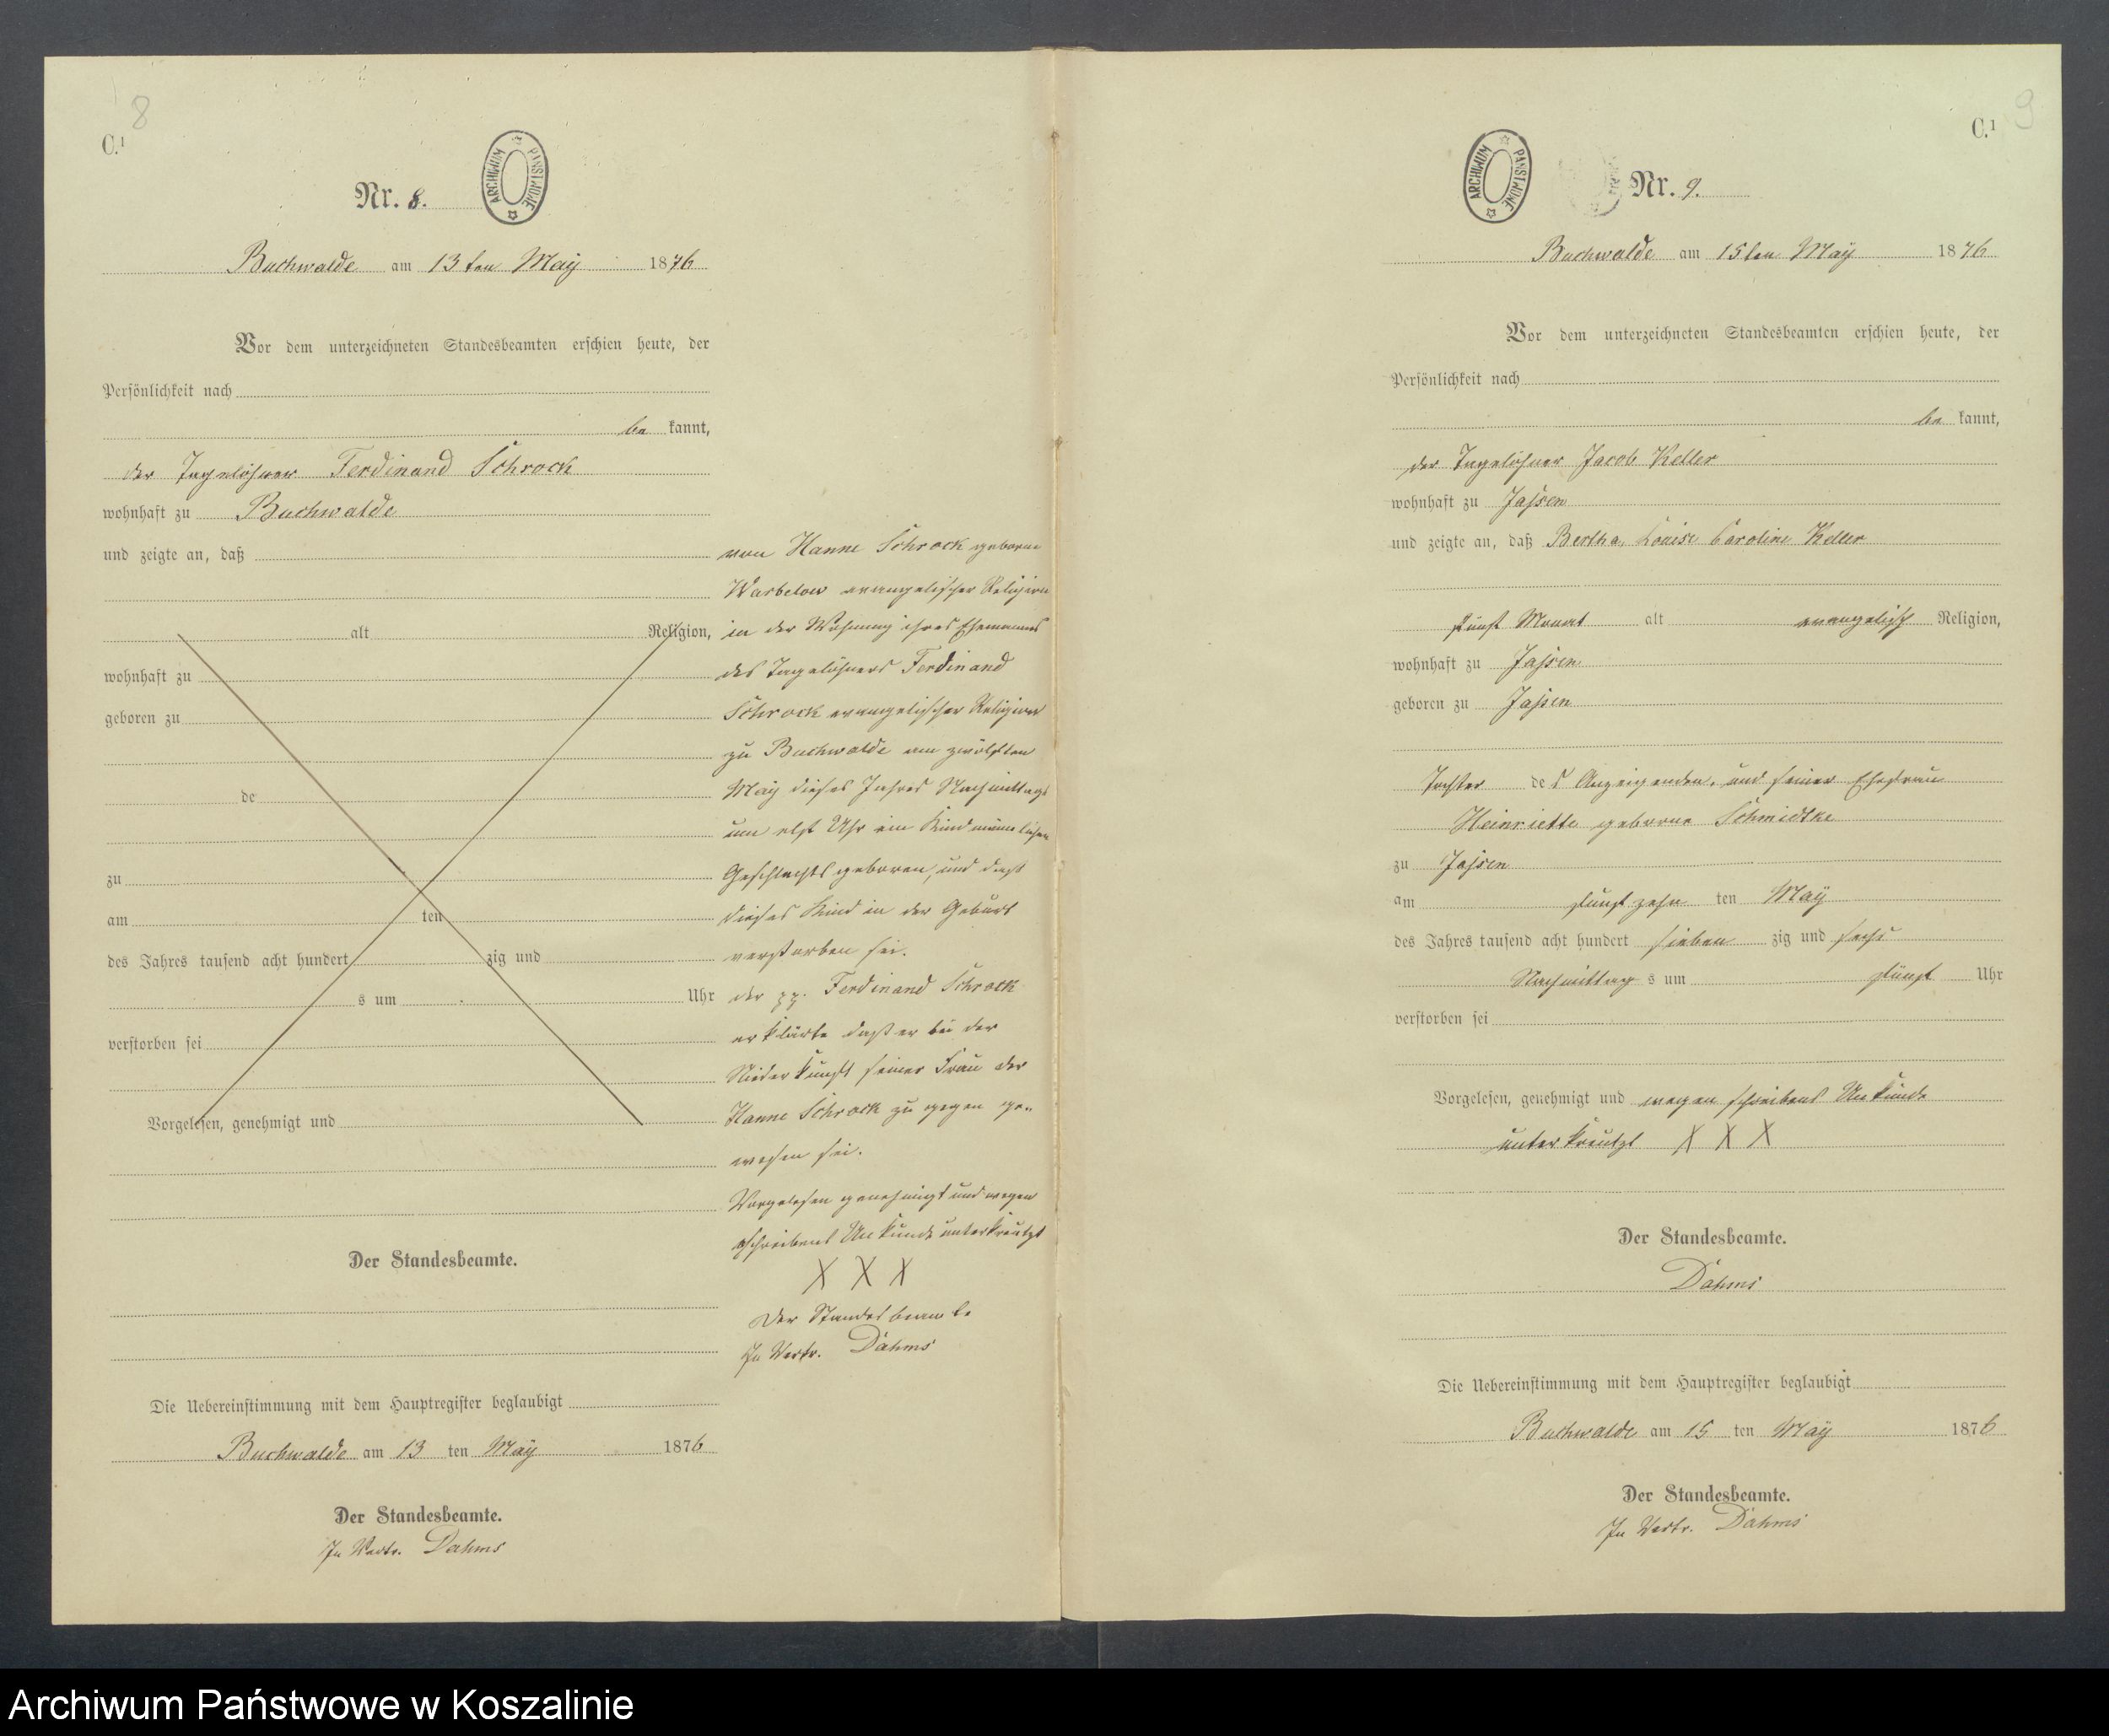 8
C.¹
ARCHIWUM PAŃSTWOWE
Nr. 8.
Buchwalde am 13ten Maÿ 1876
Vor dem unterzeichneten Standesbeamten erschien heute, der
Persönlichkeit nach
be kannt,
der Tagelöhner Ferdinand Schrock
wohnhaft zu Buchwalde
und zeigte an, daß
alt Religion,
wohnhaft zu
geboren zu
de
zu
am ten
des Jahres tausend acht hundert zig und
s um Uhr
verstorben sei
Vorgelesen, genehmigt und
von Hanne Schrock geborne
Warbelow evangelischer Religion
in der Wohnung ihres Ehemannes
des Tagelöhners Ferdinand
Schrock evangelischer Religion
zu Buchwalde am zwölften
Maÿ dieses Jahres Nachmittags
um elf Uhr ein Kind männlichen
Geschlechts geboren, und daß
dieses Kind in der Geburt
verstorben sei.
der pp. Ferdinand Schrock
erklärte daß er bei der
Niederkunft seiner Frau der
Hanne Schrock zu gegen ge-
wesen sei.
Vorgelesen genehmigt und wegen
schreibens Unkunde unterkreutzt
X X X
Der Standesbeamte
In Vertr. Dahms
Der Standesbeamte.
Die Uebereinstimmung mit dem Hauptregister beglaubigt
Buchwalde am 13 ten Maÿ 1876
Der Standesbeamte.
In Vertr. Dahms
9
C.¹
ARCHIWUM PAŃSTWOWE
Nr. 9.
Buchwalde am 15ten Maÿ 1876
Vor dem unterzeichneten Standesbeamten erschien heute, der
Persönlichkeit nach
be kannt,
der Tagelöhner Jacob Keller
wohnhaft zu Jassen
und zeigte an, daß Bertha, Louise Caroline Keller
fünf Monat alt evangelisch Religion,
wohnhaft zu Jassen
geboren zu Jassen
Tochter des Anzeigenden, und seiner Ehefrau
Heinriette geborne Schmidtke
zu Jassen
am funfzehn ten Maÿ
des Jahres tausend acht hundert sieben zig und sechs
Nachmittag s um fünf Uhr
verstorben sei
Vorgelesen, genehmigt und wegen schreibens Unkunde
unterkreutzt X X X
Der Standesbeamte.
Dahms
Die Uebereinstimmung mit dem Hauptregister beglaubigt
Buchwalde am 15 ten Maÿ 1876
Der Standesbeamte.
In Vertr. Dahms
Archiwum Państwowe w Koszalinie